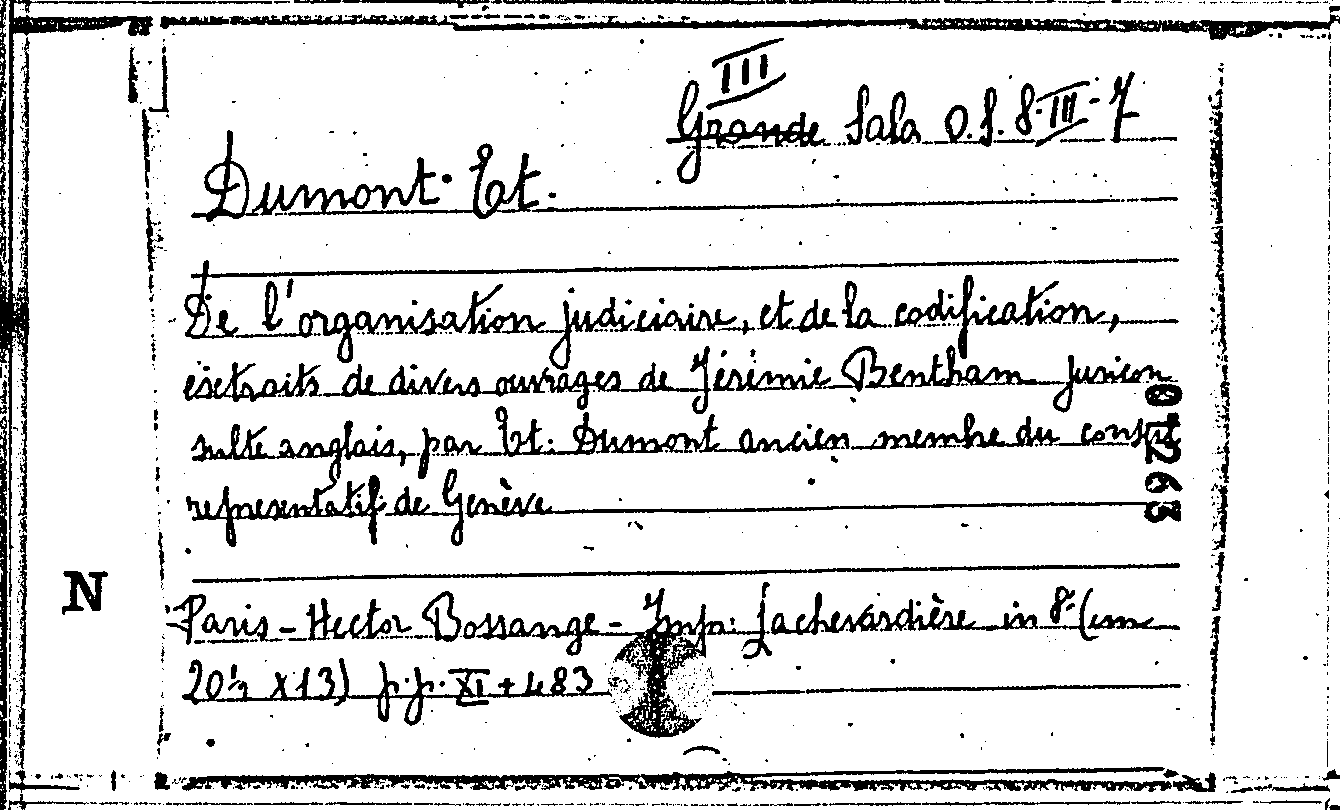 III
Grande Sala O.S. 8-III-7
Dumont. Et.
De l'organisation judiciaire, et de la codification,
extraits de divers ouvrages de Jérémie Bentham Juriscon
sulte anglais, par Et. Dumont ancien membre du conseil
représentatif de Genève
01263
N
Paris - Hector Bossange - Imp. Lachevardière in 8° (cm
20½ x 13) p.p. XI + 483